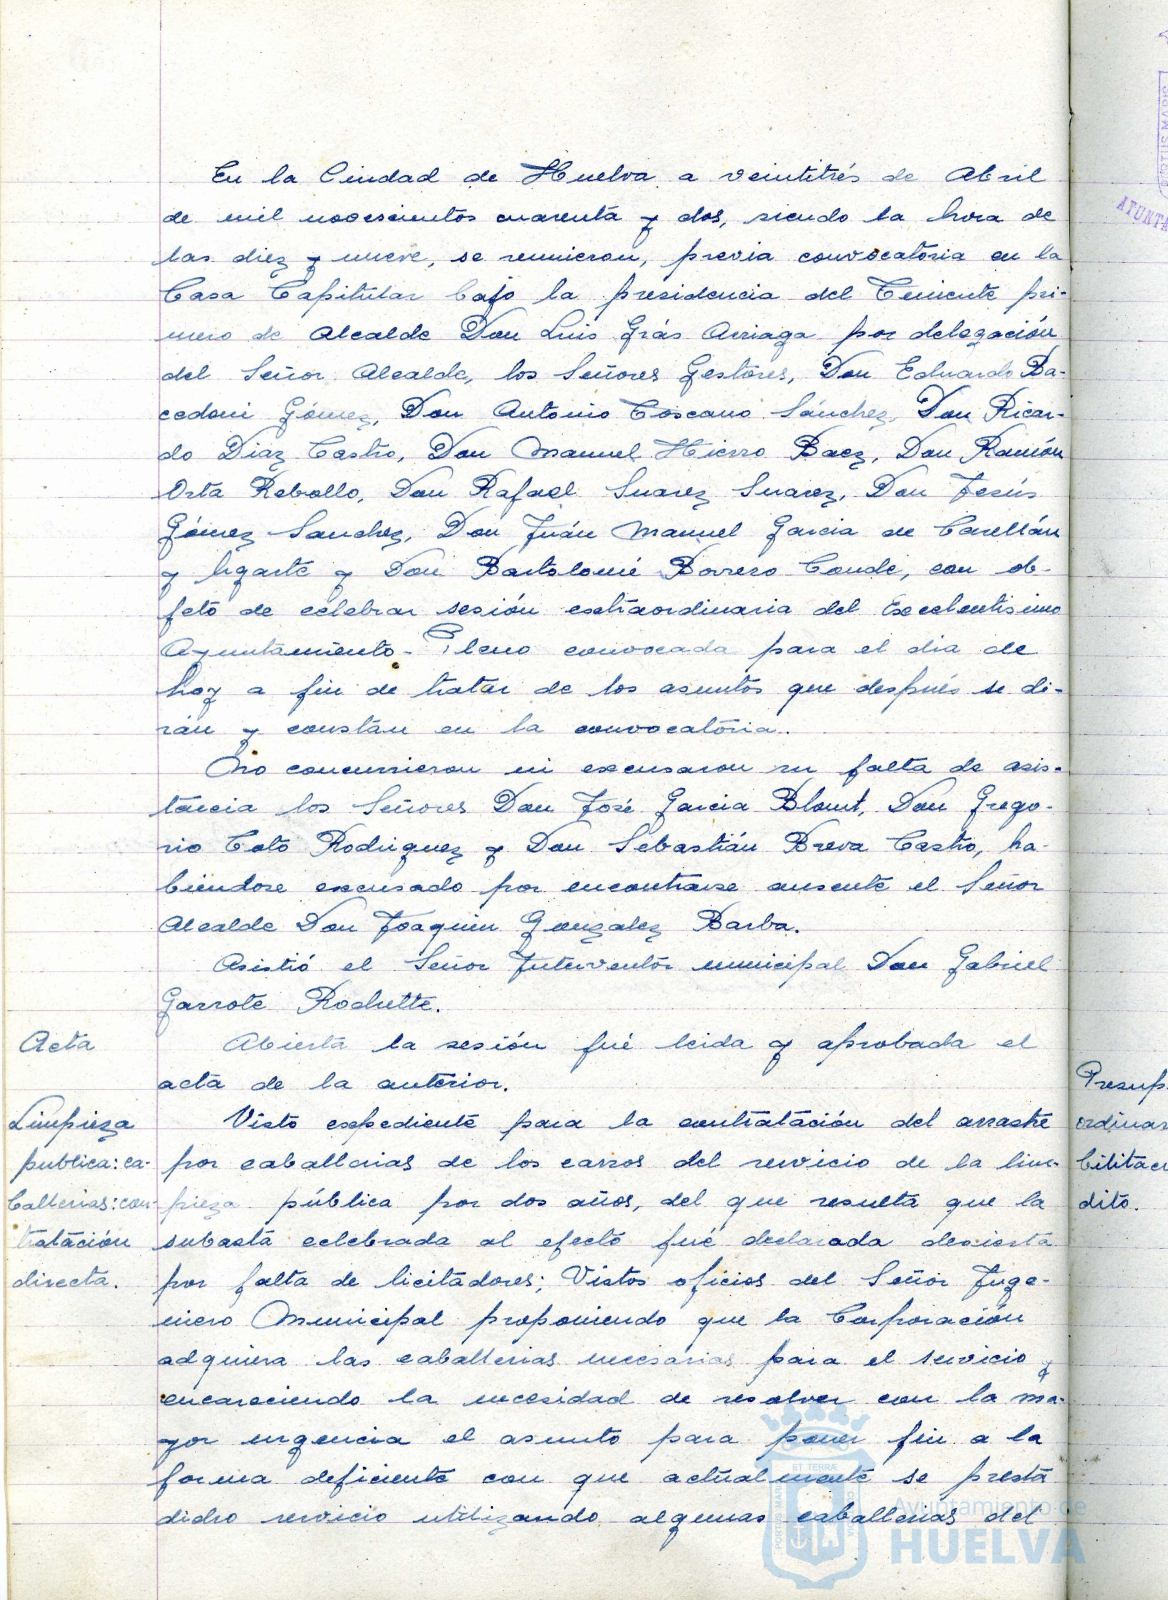 En la Ciudad de Huelva a veintitrés de Abril
de mil novescientos cuarenta y dos, siendo la hora de
las diez y nueve, se reunieron, previa convocatoria en la
Casa Capitular bajo la presidencia del Teniente pri-
mero de Alcalde Don Luis Grás Arriaga por delegación
del Señor Alcalde, los Señores Gestores, Don Eduardo Ba-
cedoni Gómez, Don Antonio Toscano Sánchez, Don Ricar-
do Diaz Castro, Don Manuel Hierro Baez, Don Ramón
Orta Rebollo, Don Rafael Suarez Suarez, Don Jesús
Gómez Sanchez, Don Juán Manuel Garcia de Casellán
y Ugarte y Don Bartolomé Borrero Conde, con ob-
jeto de celebrar sesión extraordinaria del Excelentisimo
Ayuntamiento-Pleno convocada para el dia de
hoy a fin de tratar de los asuntos que después se di-
rán y constan en la convocatoria.
No concurrieron ni excusaron su falta de asis-
tencia los Señores Don José Garcia Blount, Don Grego-
rio Coto Rodriguez y Don Sebastián Breva Castro, ha-
biendose excusado por encontrarse ausente el Señor
Alcalde Don Joaquin Gonzalez Barba.
Asistió el Señor Interventor municipal Don Gabriel
Garrote Rochette.
Acta
Abierta la sesión fué leida y aprobada el
acta de la anterior.
Limpieza
publica: ca-
ballerias: con-
tratación
directa.
Visto expediente para la contratación del arrastre
por caballerias de los carros del servicio de la lim-
pieza pública por dos años, del que resulta que la
subasta celebrada al efecto fué declarada desierta
por falta de licitadores; Vistos oficios del Señor Inge-
niero Municipal proponiendo que la Corporación
adquiera las caballerias necesarias para el servicio y
encareciendo la necesidad de resolver con la ma-
yor urgencia el asunto para poner fin a la
forma deficiente con que actualmente se presta
dicho servicio utilizando algunas caballerias del
Presup.
ordinar
bilitac
dito.
Ayuntamiento de
HUELVA